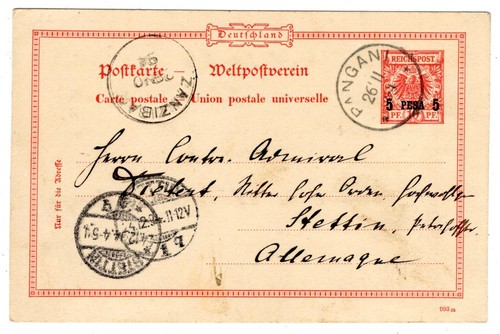 Deutschland
Postkarte — Weltpostverein
Carte postale — Union postale universelle
REICHSPOST
5 PESA 5
PF. PF.
PANGANI
26 11
ZANZIBAR
NO
94
Nur für die Adresse
Herrn Contre-Admiral
Ritter hoher Orden, Hochwohlg.
Stettin,
Allemagne
STETTIN
12.94.11-12V
4-5
993 a